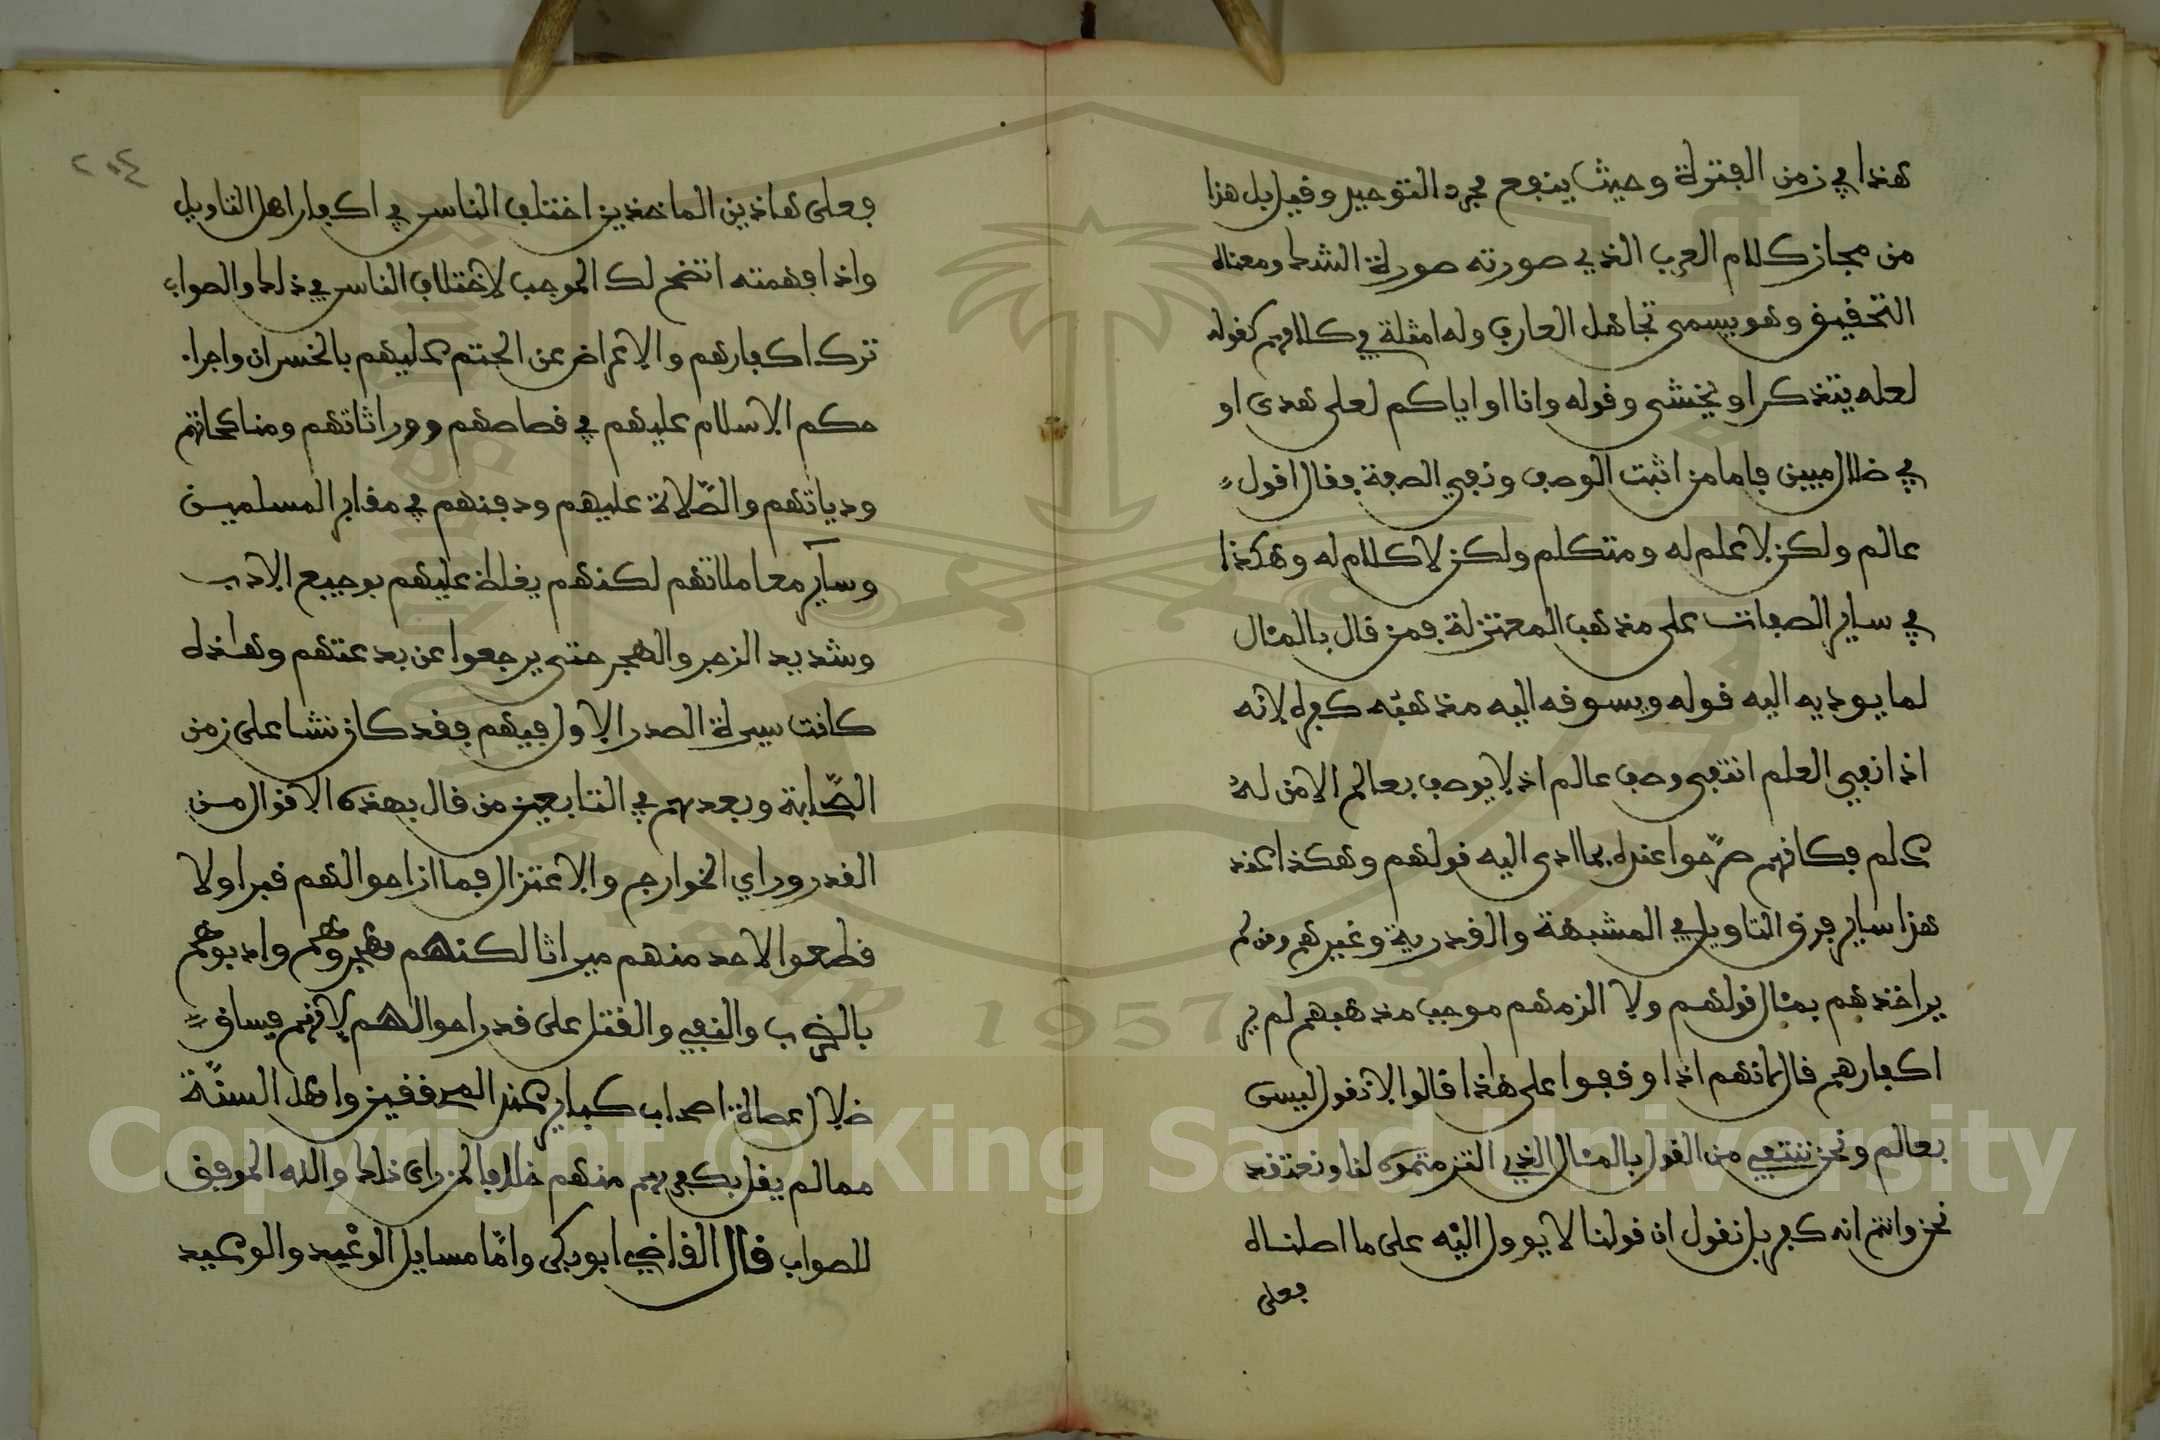 هذا في زمن الفترة وحيث ينفع مجرد التوحيد وقيل بل هذا
من مجاز كلام العرب الذي صورته صورة الشك ومعناه
التحقيق وهو يسمى تجاهل العارف وله امثلة في كلامهم كقوله
لعله يتذكر او يخشى وقوله وانا او اياكم لعلى هدى او
في ضلال مبين فاما من اثبت الوصف ونفى الصفة فقال اقول
عالم ولكن لا علم له ومتكلم ولكن لا كلام له وهكذا
في ساير الصفات على مذهب المعتزلة فمن قال بالمئال
لما يوديه اليه قوله ويسوقه اليه مذهبه كفره لانه
اذا نفى العلم انتفى وصف عالم اذ لا يوصف بعالم الا من له
علم فكانهم صرحوا عنده بما ادى اليه قولهم وهكذا عند
هذا ساير فرق التاويل في المشبهة والقدرية وغيرهم ومن لم
ير اخذهم بمئال قولهم ولا الزمهم موجب مذهبهم لم ير
اكفارهم قال لانهم اذا وقفوا على هاذا قالوا لا نقول ليس
بعالم ونحن ننتفي من القول بالمئال الذي التزمتموه لنا ونعتقد
نحن وانتم انه كفر بل نقول ان قولنا لا يوول اليه على ما اصلناه
فعلى
٢٠٤
فعلى هاذين الماخذين اختلف الناس في اكفار اهل التاويل
واذا فهمته اتضح لك الموجب لاختلاف الناس في ذلك والصواب
ترك اكفارهم والاعراض عن الحتم عليهم بالخسران واجراء
حكم الاسلام عليهم في قصاصهم ووراثاتهم ومناكحاتهم
ودياتهم والصّلاة عليهم ودفنهم في مقابر المسلمين
وساير معاملاتهم لكنهم يغلظ عليهم بوجيع الادب
وشديد الزجر والهجر حتى يرجعوا عن بدعتهم وهاذه
كانت سيرة الصدر الاول فيهم فقد كان نشا على زمن
الصّحابة وبعدهم في التابعين من قال بهذه الاقوال من
القدر وراي الخوارج والاعتزال فما ازاحوا لهم قبرا ولا
قطعوا لاحد منهم ميراثا لكنهم هجروهم وادبوهم
بالضرب والنفي والقتل على قدر احوالهم لانهم فساق
ضلال عصاة اصحاب كباير عند المحققين واهل السنّة
ممن لم يقل بكفرهم منهم خلافا لمن راى ذلك والله الموفق
للصواب قال القاضي ابو بكر وامّا مسايل الوعْد والوعيد